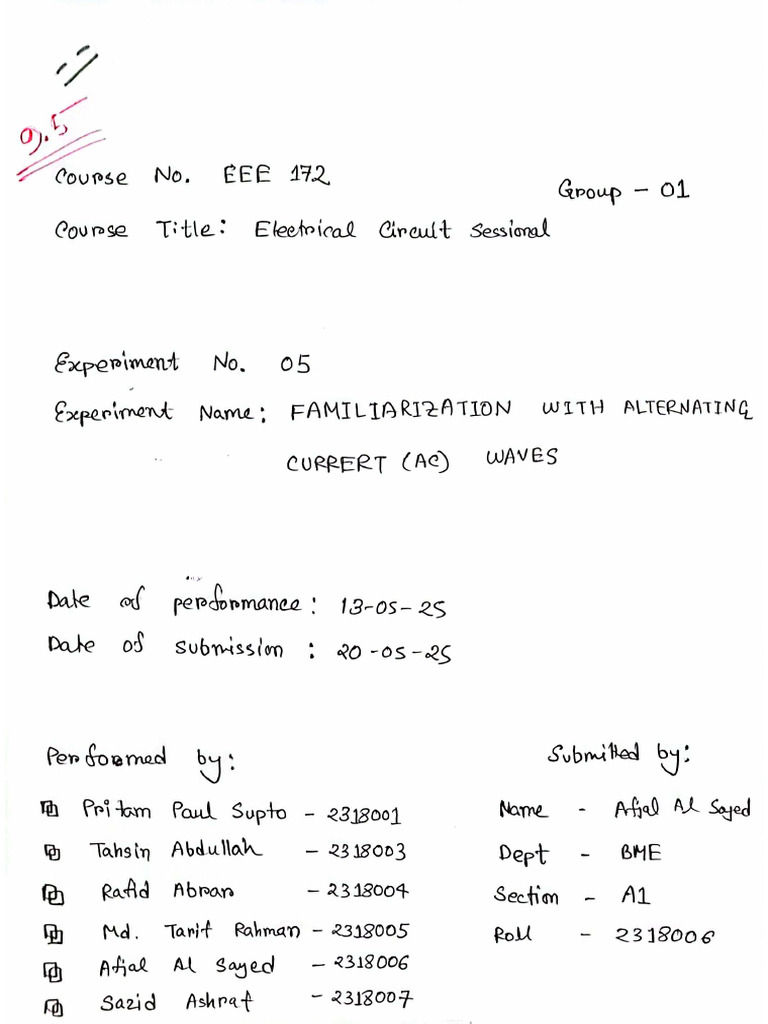 9.5
Course No. EEE 172
Group - 01
Course Title: Electrical Circuit Sessional
Experiment No. 05
Experiment Name: FAMILIARIZATION WITH ALTERNATING
CURRERT (AC) WAVES
Date of performance: 13-05-25
Date of submission: 20-05-25
Performed by:
Submitted by:
Pritam Paul Supto - 2318001
Name - Afjal Al Sayed
Tahsin Abdullah - 2318003
Dept - BME
Rafid Abrar - 2318004
Section - A1
Md. Tarif Rahman - 2318005
Roll - 2318006
Afjal Al Sayed - 2318006
Sazid Ashraf - 2318007